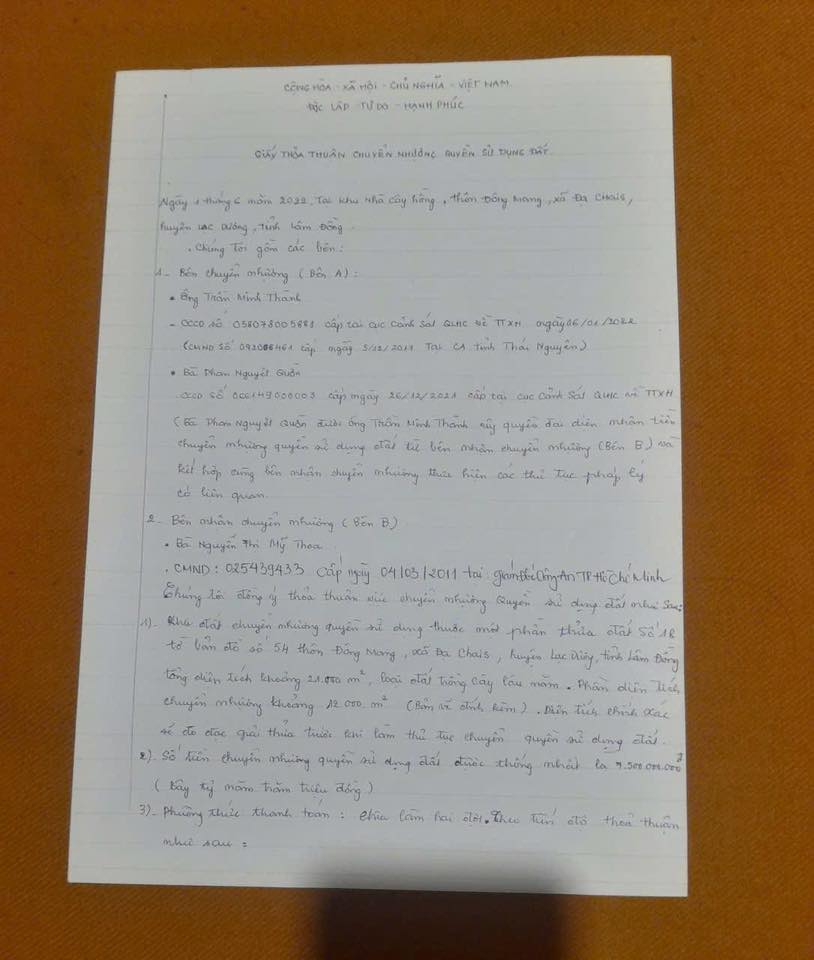 CỘNG HÒA - XÃ HỘI - CHỦ NGHĨA - VIỆT NAM
ĐỘC LẬP - TỰ DO - HẠNH PHÚC
GIẤY THỎA THUẬN CHUYỂN NHƯỢNG QUYỀN SỬ DỤNG ĐẤT
Ngày 1 tháng 6 năm 2022. Tại khu nhà cây hồng, thôn Đông Mang, xã Đạ Chais,
huyện Lạc Dương, tỉnh Lâm Đồng
. Chúng tôi gồm các bên:
1- Bên chuyển nhượng (Bên A):
• Ông Trần Minh Thành
- CCCD số cấp tại cục Cảnh Sát QLHC về TTXH ngày 06/01/2022
(CMND Số cấp ngày 5/12/2011 Tại CA tỉnh Thái Nguyên)
• Bà Phan Nguyệt Quần
CCCD số 066149000003 cấp ngày 26/12/2021 cấp tại cục Cảnh Sát QLHC về TTXH
(Bà Phan Nguyệt Quần được ông Trần Minh Thành ủy quyền đại diện nhận tiền
chuyển nhượng quyền sử dụng đất từ bên nhận chuyển nhượng (Bên B) và
kết hợp cùng bên nhận chuyển nhượng thực hiện các thủ tục pháp lý
có liên quan.
2- Bên nhận chuyển nhượng (Bên B)
• Bà Nguyễn Thị Mỹ Thoa
. CMND: 025439433 Cấp ngày 04/03/2011 tại: Giám Đốc Công An TP Hồ Chí Minh
Chúng tôi đồng ý thỏa thuận việc chuyển nhượng Quyền sử dụng đất như Sau:
1)- Khu đất chuyển nhượng quyền sử dụng thuộc một phần thửa đất Số 18
tờ bản đồ số 54 thôn Đông Mang, xã Đạ Chais, huyện Lạc Dương, tỉnh Lâm Đồng
tổng diện tích khoảng 21.000 m², loại đất trồng cây lâu năm. Phần diện tích
chuyển nhượng khoảng 12.000 m² (Bản vẽ đính kèm). Diện tích chính xác
sẽ đo đạc giải thửa trước khi làm thủ tục chuyển quyền sử dụng đất.
2)- Số tiền chuyển nhượng quyền sử dụng đất được thống nhất là 7.500.000.000đ
(Bảy tỷ năm trăm triệu đồng)
3)- Phương thức thanh toán: chia làm hai đợt. Theo tiến độ thỏa thuận
như sau: